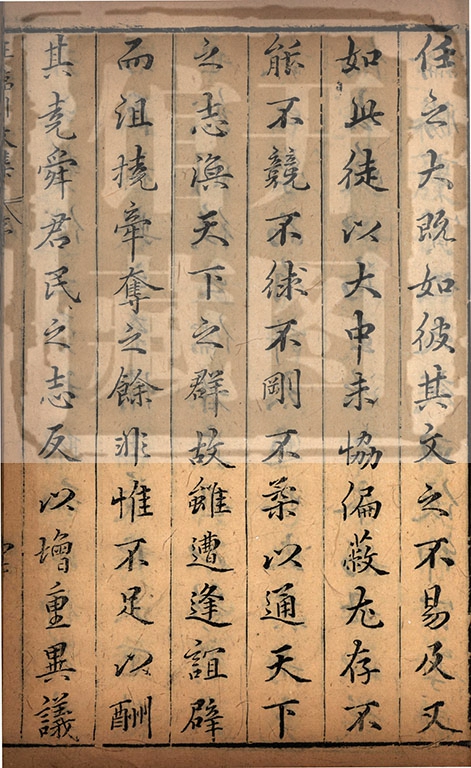 任之大既如彼其文之不易及又
如此徒以大中未協偏蔽尤存不
能不競不絿不剛不柔以通天下
之志渙天下之群故雖遭逢誼辟
而沮撓牽奪之餘非惟不足以酬
其堯舜君民之志反以增重異議